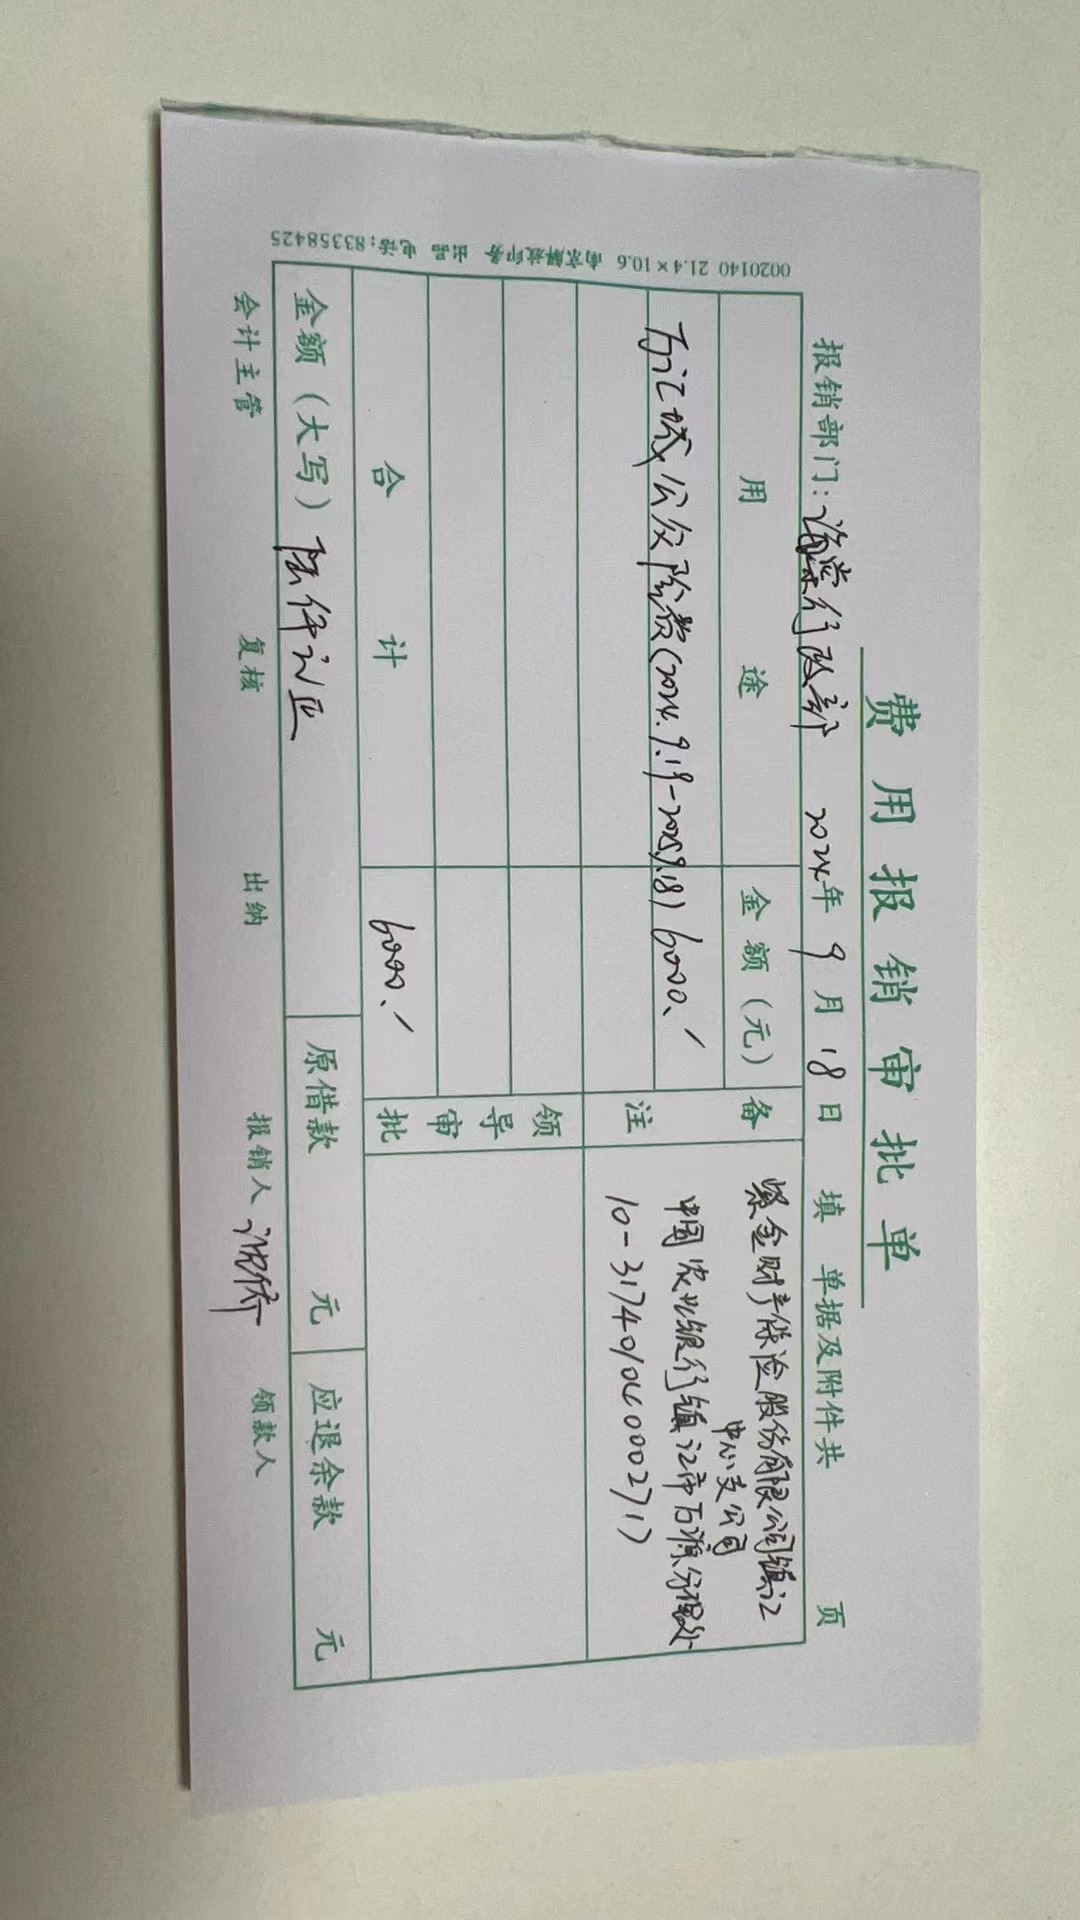 费用报销审批单
报销部门：海棠行政部 2024年9月18日 填 单据及附件共 页
用途 金额（元） 备注
万江城公众险费（2024.9.19-2025.9.18） 6000.
紫金财产保险股份有限公司镇江
中心支公司
中国农业银行镇江市万源分理处
10-317401040002717
领导审批
合计 6000.
金额（大写）陆仟元正 原借款 元 应退余款 元
会计主管 复核 出纳 报销人 领款人
0020140 21.4×10.6 南京解放印务 出品 电话：83358425